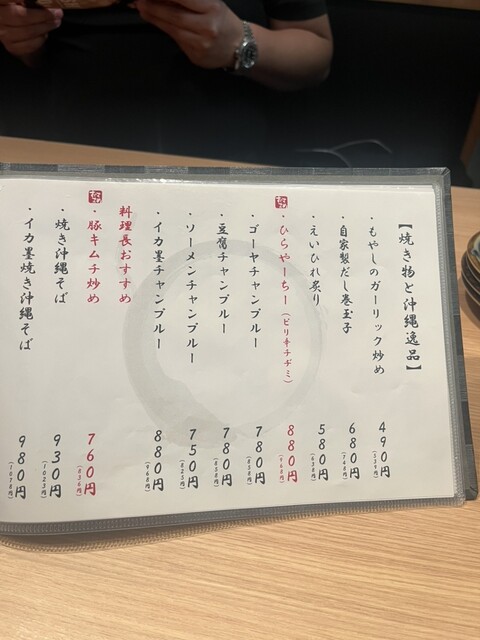 【焼き物と沖縄逸品】
・もやしのガーリック炒め 490円 (539円)
・自家製だし巻玉子 680円 (748円)
・えいひれ炙り 580円 (638円)
・ひらやーちー (ピリ辛チヂミ) 880円 (968円)
・ゴーヤチャンプルー 780円 (858円)
・豆腐チャンプルー 780円 (858円)
・ソーメンチャンプルー 750円 (825円)
・イカ墨チャンプルー 880円 (968円)
料理長おすすめ
・豚キムチ炒め 760円 (836円)
・焼き沖縄そば 930円 (1023円)
・イカ墨焼き沖縄そば 980円 (1078円)